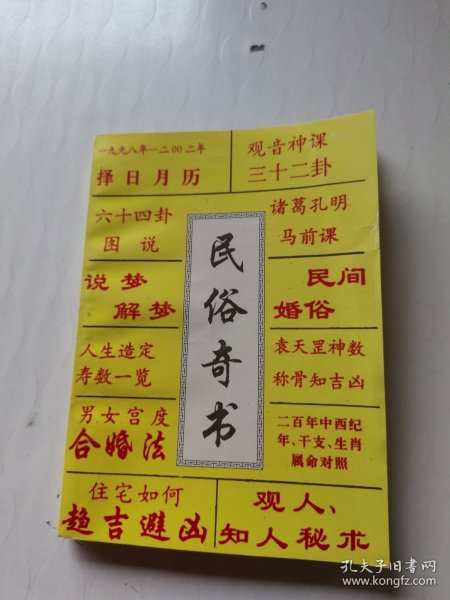 一九九八年—二00二年
择日月历
观音神课
三十二卦
六十四卦
图说
诸葛孔明
马前课
民俗奇书
说梦
解梦
民间
婚俗
人生造定
寿数一览
袁天罡神数
称骨知吉凶
男女宫度
合婚法
二百年中西纪
年、干支、生肖
属命对照
住宅如何
趋吉避凶
观人、
知人秘术
孔夫子旧书网
www.kongfz.com